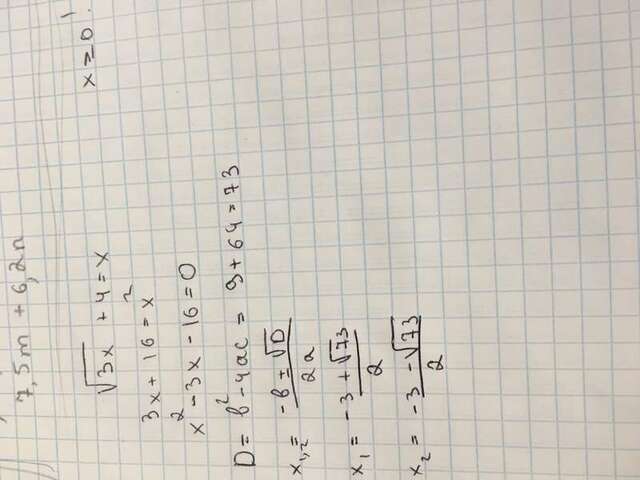 7,5m + 6,2n
√3x + 4 = x x ≥ 0 !
3x + 16 = x²
x² - 3x - 16 = 0
D = b² - 4ac = 9 + 64 = 73
x₁,₂ = (-b ± √D) / 2a
x₁ = (-3 + √73) / 2
x₂ = (-3 - √73) / 2